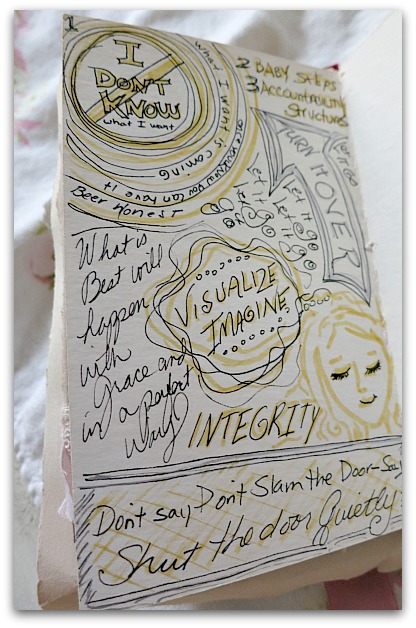 1
I
DON'T
KNOW
what I want
what I want is coming
once you know you can have it
Been Honest
2 BABY STEPS
3 ACCOUNTABILITY
Structures
TURN
OVER
Let it go
Let it go
Let it go
What is
Best will
happen
with
Grace and
in a perfect
Way
VISUALIZE
IMAGINE
INTEGRITY
Don't say Don't Slam the Door - Say
Shut the door Quietly